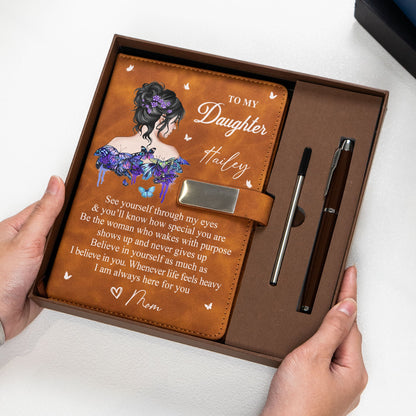 TO MY
Daughter
Hailey
See yourself through my eyes
& you'll know how special you are
Be the woman who wakes with purpose
shows up and never gives up
Believe in yourself as much as
I believe in you. Whenever life feels heavy
I am always here for you
Mom